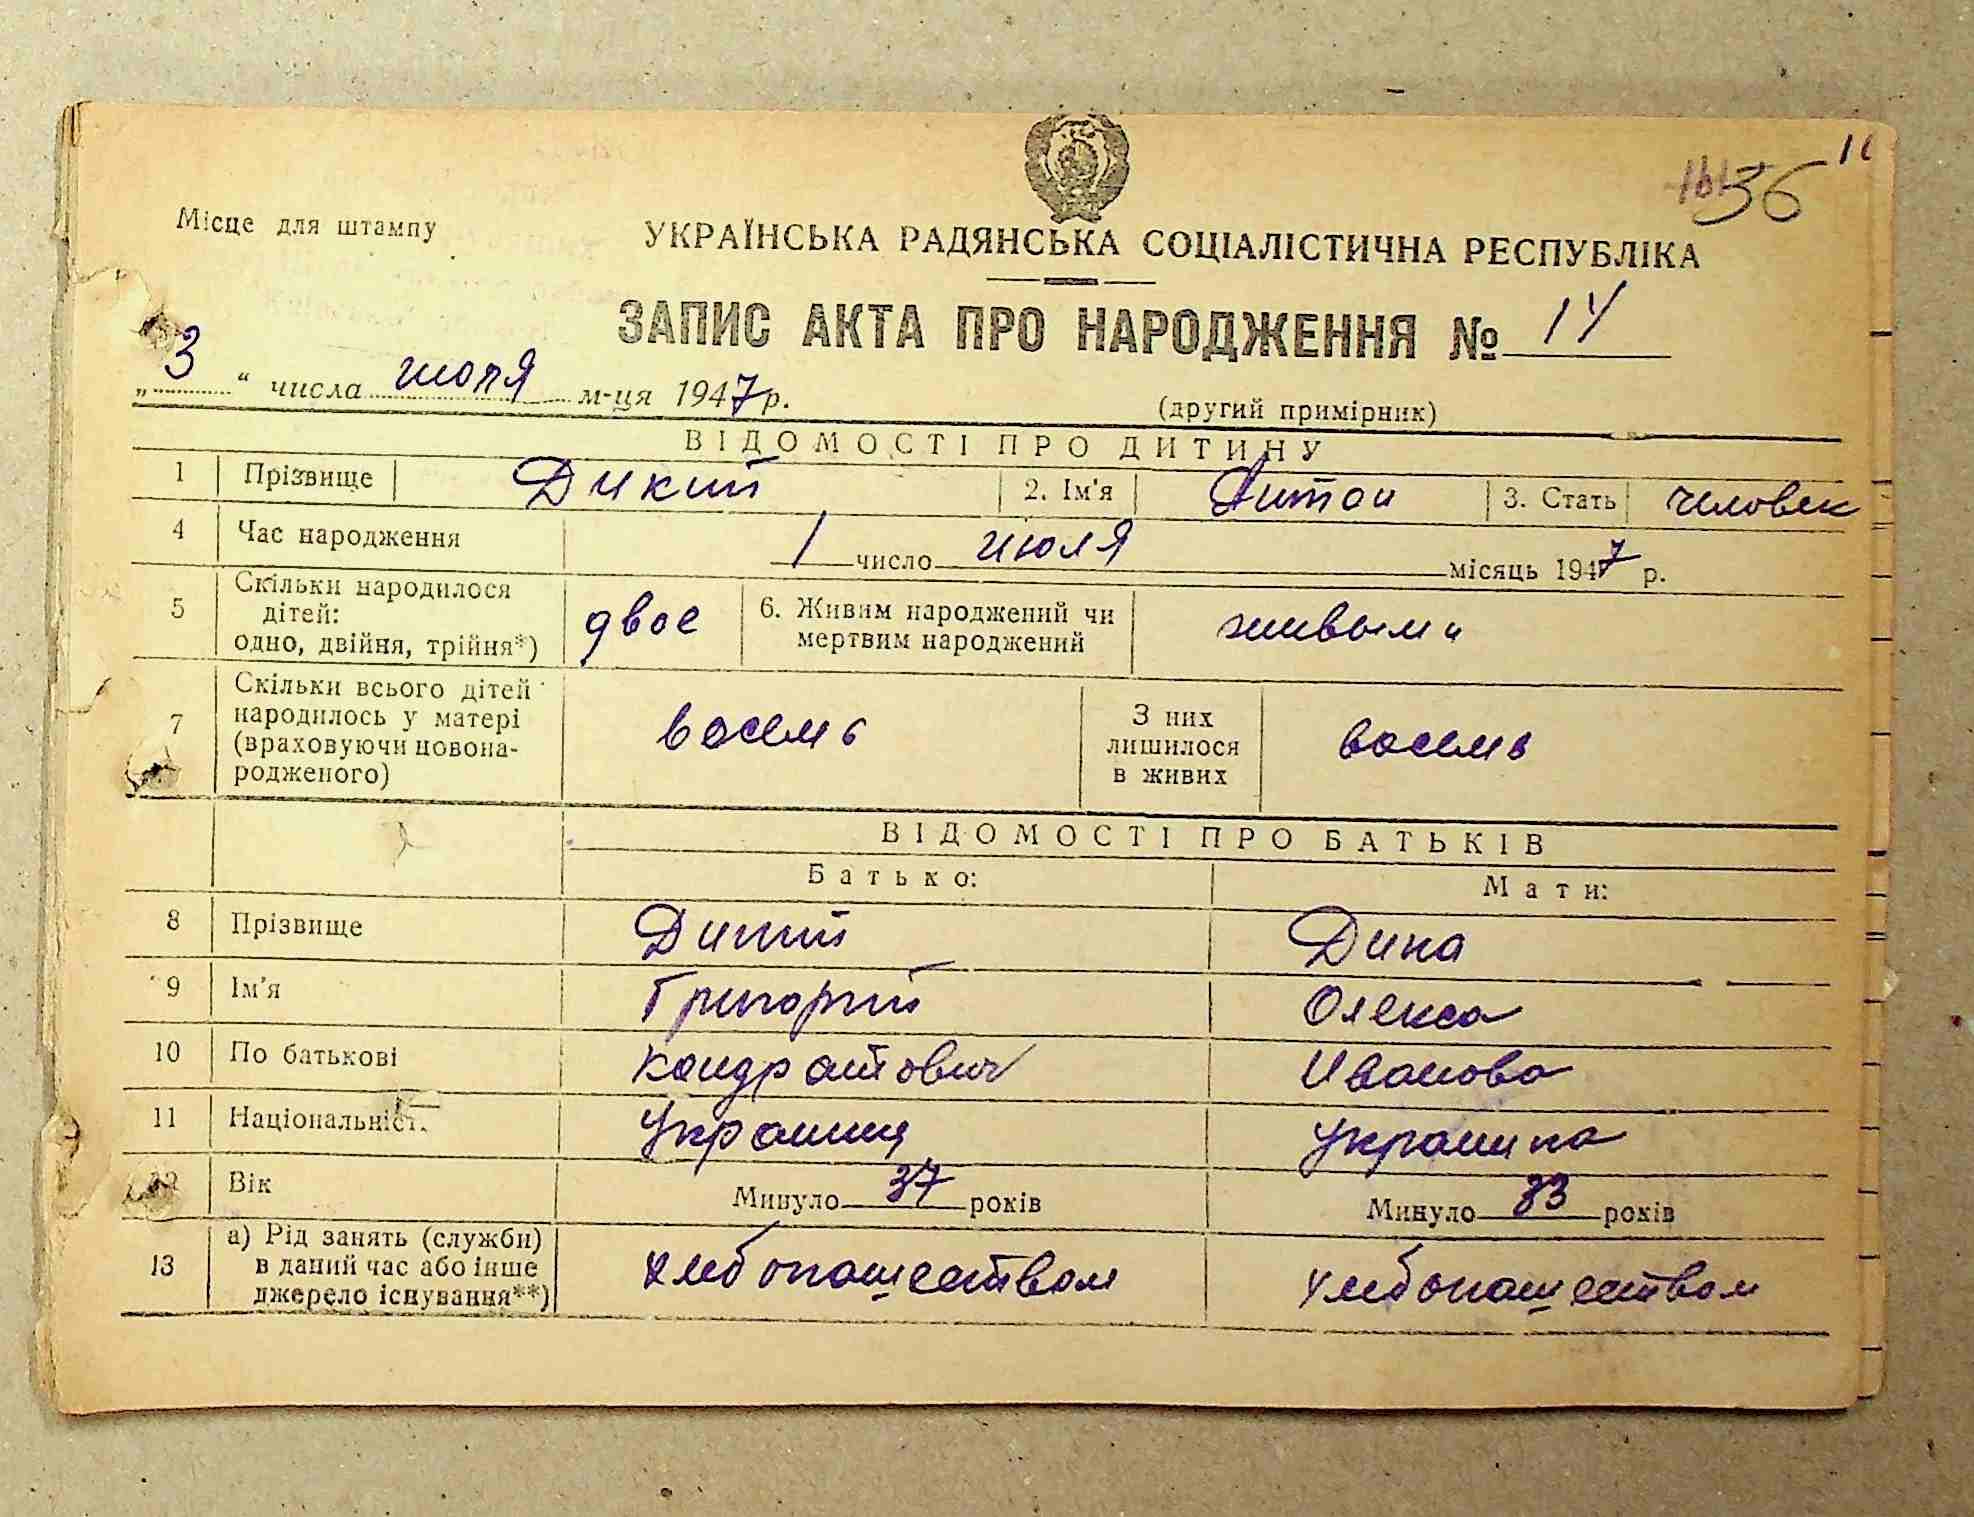 11
36
Місце для штампу
УКРАЇНСЬКА РАДЯНСЬКА СОЦІАЛІСТИЧНА РЕСПУБЛІКА
ЗАПИС АКТА ПРО НАРОДЖЕННЯ № 14
„ 3 “ числа июля м-ця 1947 р.
(другий примірник)
ВІДОМОСТІ ПРО ДИТИНУ
1 Прізвище Дикий 2. Ім'я Антон 3. Стать человек
4 Час народження 1 число июля місяць 1947 р.
5 Скільки народилося дітей: одно, двійня, трійня*) двое 6. Живим народжений чи мертвим народжений живыми
7 Скільки всього дітей народилось у матері (враховуючи новонародженого) восемь З них лишилося в живих восемь
ВІДОМОСТІ ПРО БАТЬКІВ
Батько: Мати:
8 Прізвище Дикий Дика
9 Ім'я Григорий Олекса
10 По батькові Кондратович Иванова
11 Національніст. Украинец Украинка
12 Вік Минуло 37 років Минуло 33 років
13 а) Рід занять (служби) в даний час або інше джерело існування**) хлебопашеством хлебопашеством